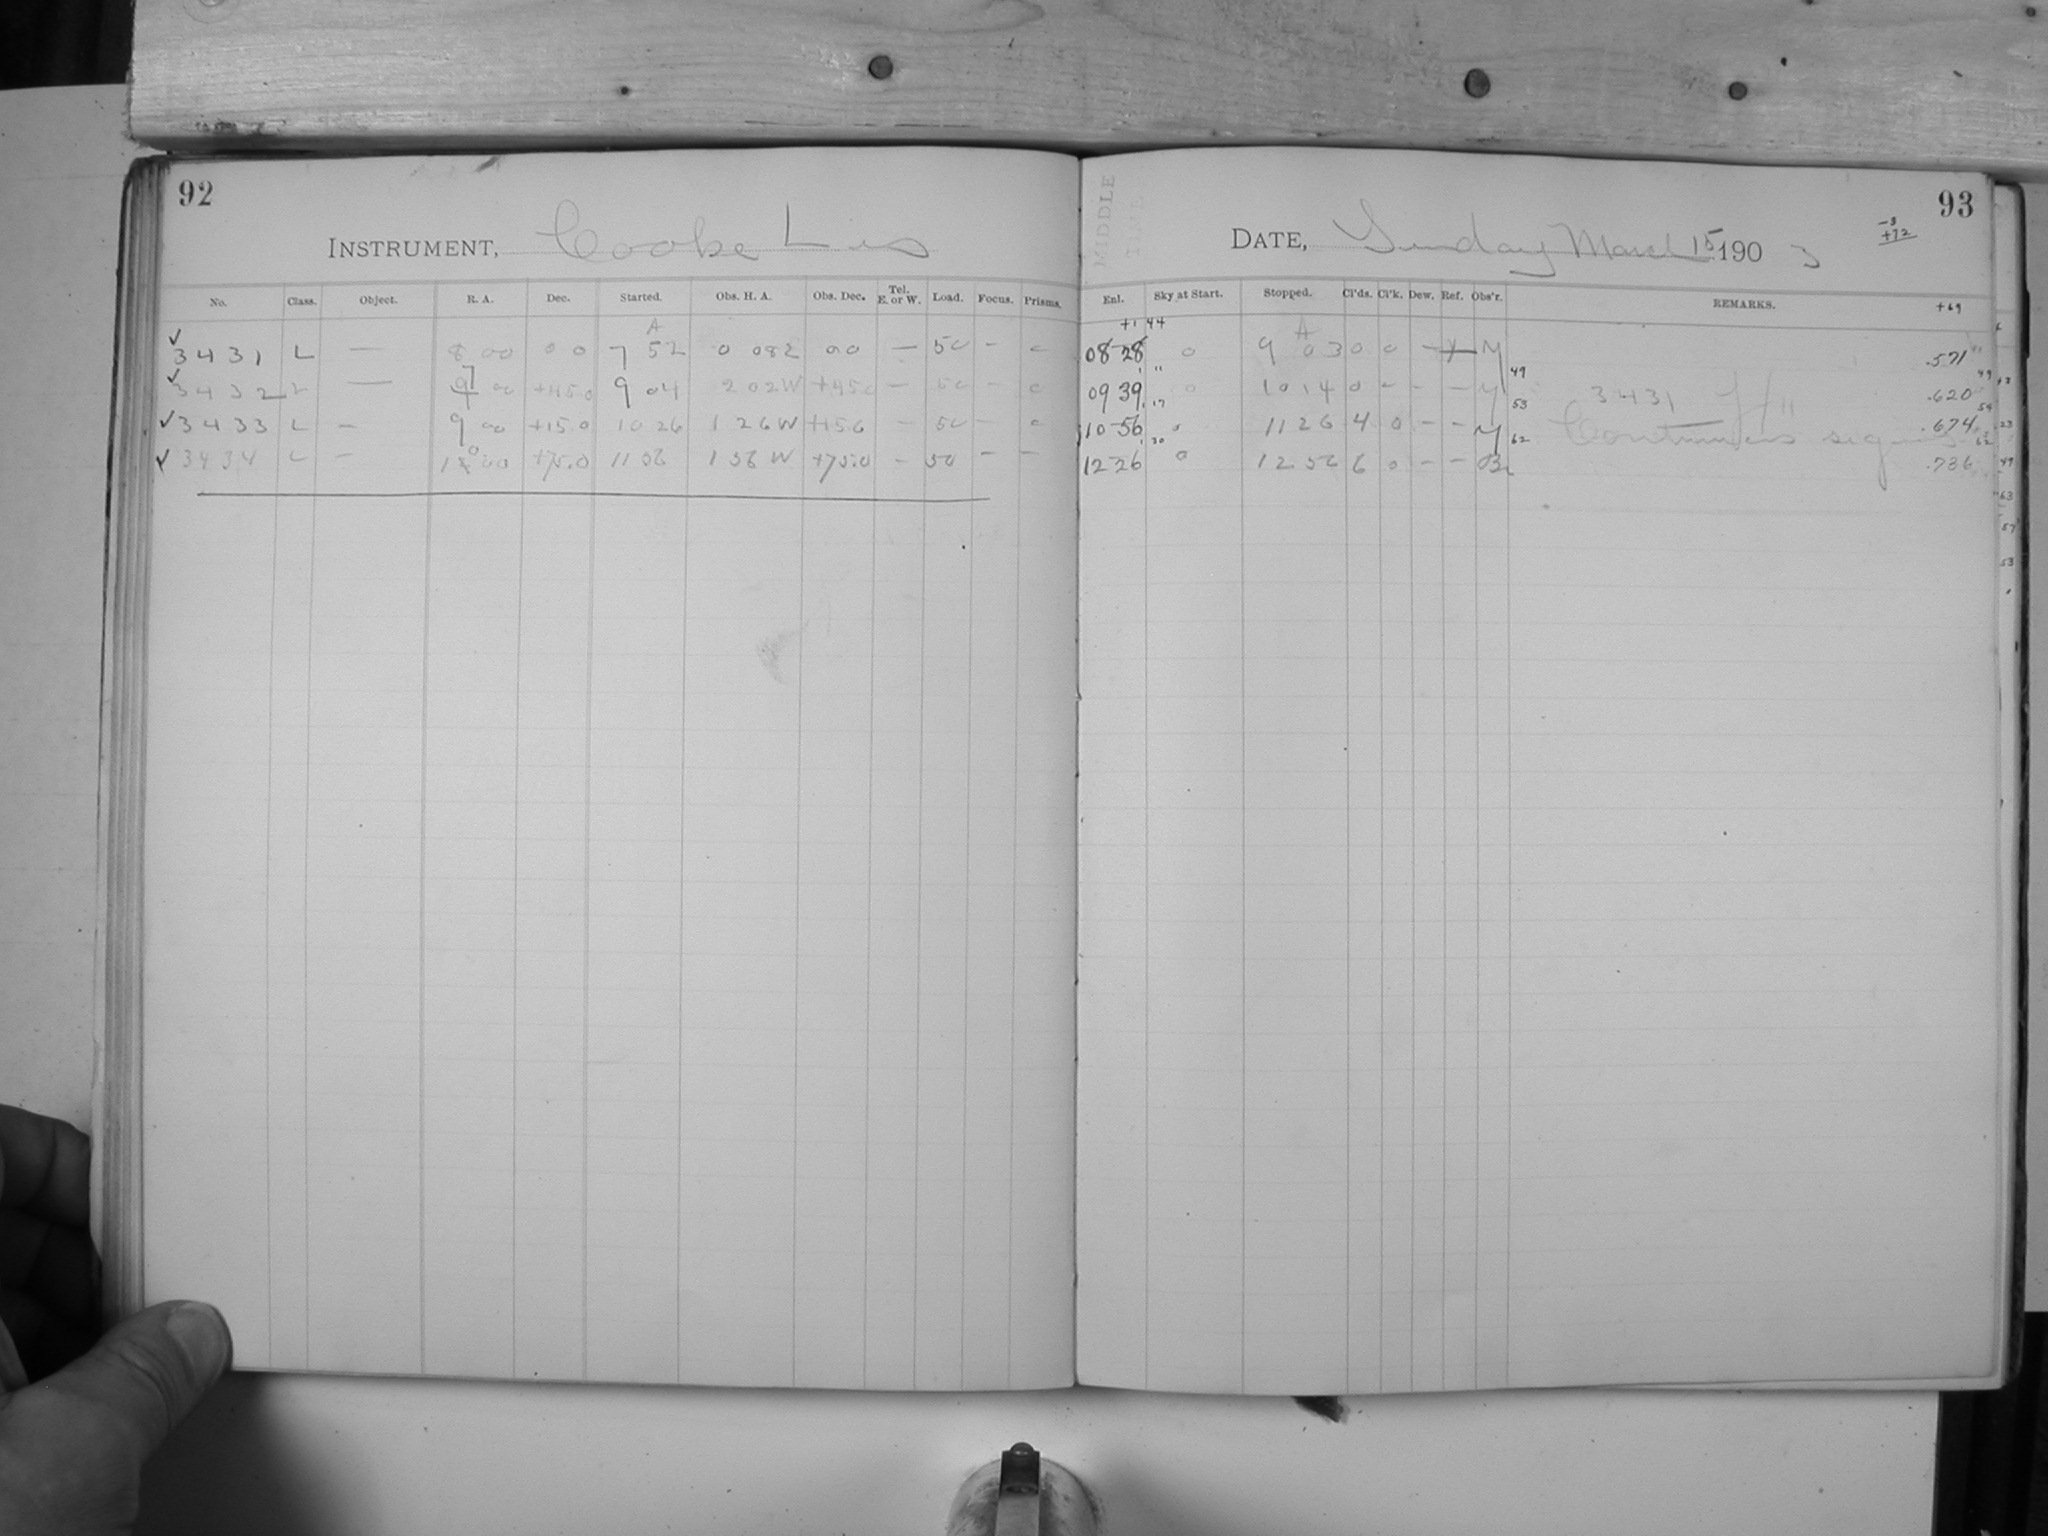 92
INSTRUMENT, Cooke Lens
No. Class. Object. R. A. Dec. Started. Obs. H. A. Obs. Dec. Tel. E. or W. Load. Focus. Prisms.
A
✓ 3431 L — 8 00 0 0 7 52 0 08 00 — 50 -
✓ 3432 L — 7 00 +45.0 9 04 2 02 W +45.0 — 50 -
✓ 3433 L — 9 00 +15.0 10 26 1 26 W +15.0 - 50 -
✓ 3434 L — 10 00 +75.0 11 56 1 56 W +75.0 - 50 - -
93
MIDDLE TIME
DATE, Sunday March 15 190 3
-3
+72
Enl. Sky at Start. Stopped. Cl'ds. Cl'k. Dew. Ref. Obs'r. REMARKS. +69
+1 44 A
08-28 0 9 03 0 0 - M .571
49
09 39 0 10 14 0 - - - M 3431 .620
53
10-56 0 11 26 4 0 - - M Continuous .674
62
12-26 0 12 56 6 0 - - .736
63
57
53